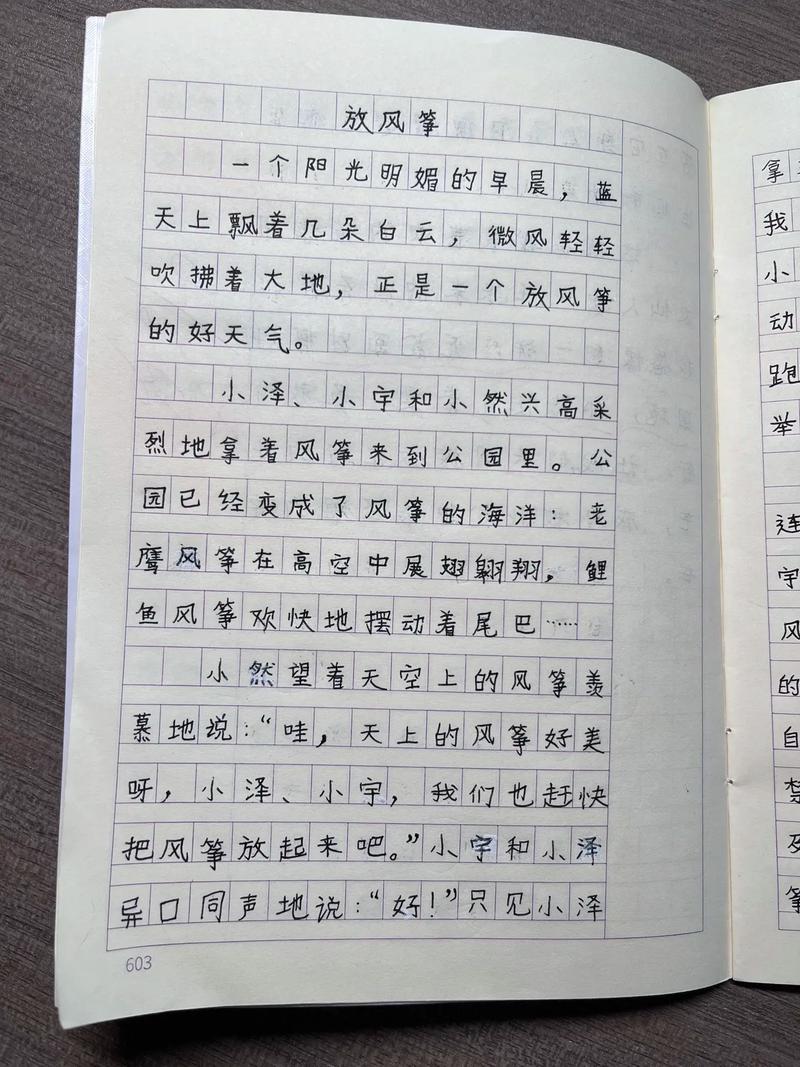 放风筝
一个阳光明媚的早晨，蓝
天上飘着几朵白云，微风轻轻
吹拂着大地，正是一个放风筝
的好天气。
小泽、小宇和小然兴高采
烈地拿着风筝来到公园里。公
园已经变成了风筝的海洋：老
鹰风筝在高空中展翅翱翔，鲤
鱼风筝欢快地摆动着尾巴……
小然望着天空上的风筝羡
慕地说：“哇，天上的风筝好美
呀，小泽、小宇，我们也赶快
把风筝放起来吧。”小宇和小泽
异口同声地说：“好！”只见小泽
603
拿
我
小
动
跑
举
连
宇
风
的
自
禁
筝